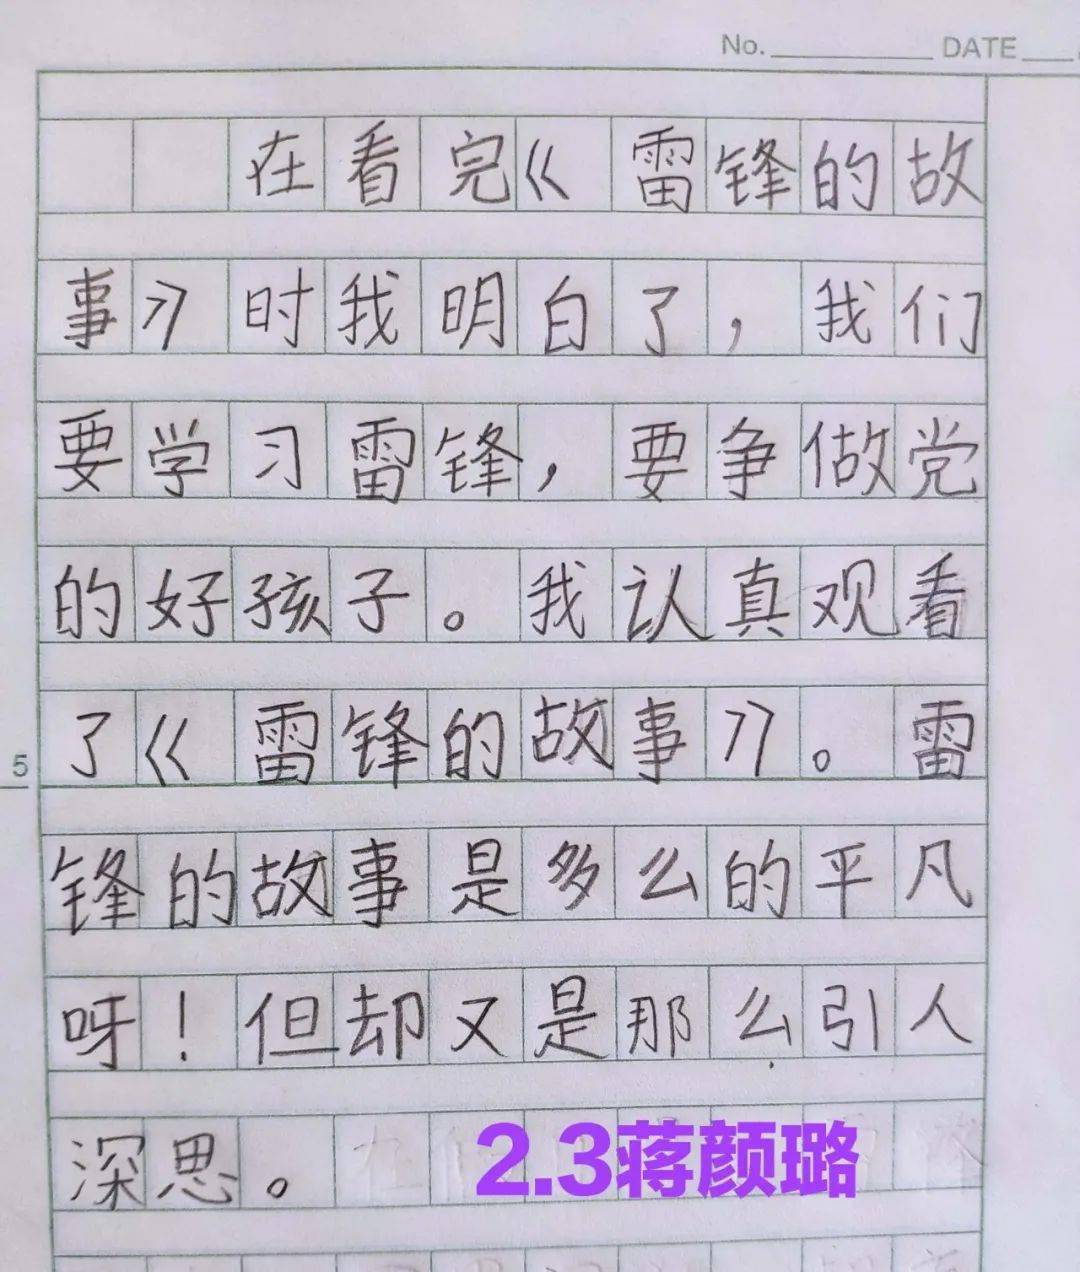 No. DATE
在看完《雷锋的故
事》时我明白了，我们
要学习雷锋，要争做党
的好孩子。我认真观看
了《雷锋的故事》。雷
5
锋的故事是多么的平凡
呀！但却又是那么引人
深思。
2.3蒋颜璐